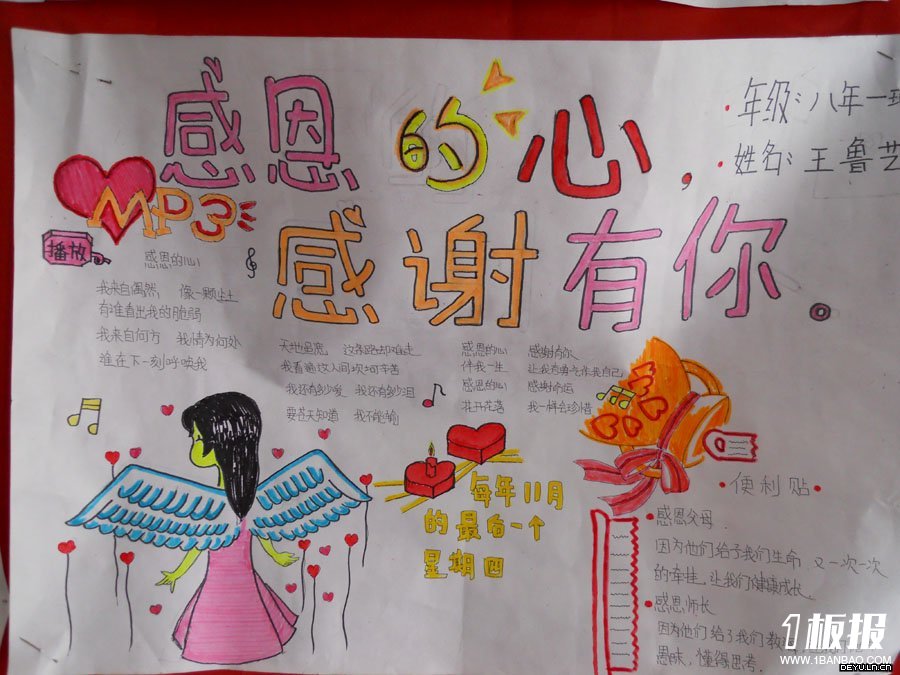 感恩的心,
感谢有你。
年级:八年一班
姓名:王鲁艺
MP3
播放
感恩的心
我来自偶然, 像一颗尘土
有谁看出我的脆弱
我来自何方 我情归何处
谁在下一刻呼唤我
天地虽宽, 这条路却难走
我看遍这人间坎坷辛苦
我还有多少爱 我还有多少泪
要苍天知道 我不认输
感恩的心 感谢有你
伴我一生 让我有勇气作我自己
感恩的心 感谢命运
花开花落 我一样会珍惜
每年11月
的最后一个
星期四
·便利贴·
·感恩父母.
因为他们给予我们生命,又一次一次
的牵挂,让我们健康成长。
·感恩师长
因为他们给了我们教
愚昧,懂得思考.
1板报
WWW.1BANBAO.COM
DEYU.LN.CN